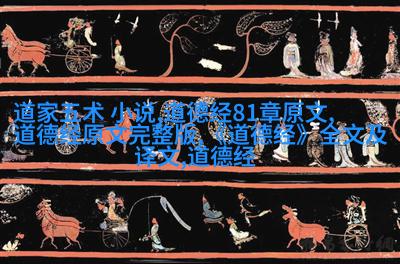 道家五术 小说,道德经81章原文,
道德经原文完整版,《道德经》全文及
译文,道德经